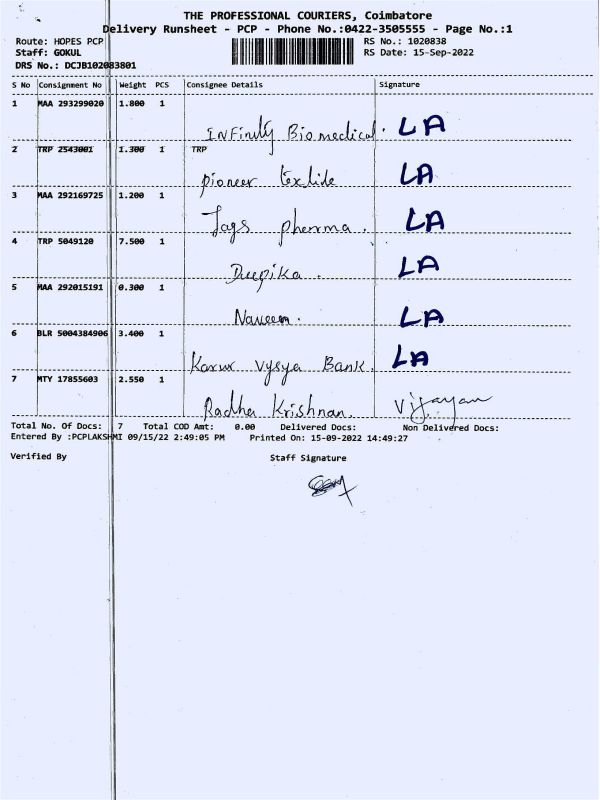 THE PROFESSIONAL COURIERS, Coimbatore
Delivery Runsheet - PCP - Phone No.:0422-3505555 - Page No.:1
Route: HOPES PCP RS No.: 1020838
Staff: GOKUL RS Date: 15-Sep-2022
DRS No.: DCJB102083801
S No Consignment No Weight PCS Consignee Details Signature
1 MAA 293299020 1.800 1
INFinity Biomedical. LA
2 TRP 2543001 1.300 1 TRP
pioneer textile LA
3 MAA 292169725 1.200 1
Jags pherma. LA
4 TRP 5049120 7.500 1
Deepika. LA
5 MAA 292015191 0.300 1
Naveen. LA
6 BLR 5004384906 3.400 1
Karur vysya Bank. LA
7 MTY 17855603 2.550 1
Radha Krishnan. Vijayan
Total No. Of Docs: 7 Total COD Amt: 0.00 Delivered Docs: Non Delivered Docs:
Entered By :PCPLAKSHMI 09/15/22 2:49:05 PM Printed On: 15-09-2022 14:49:27
Verified By Staff Signature